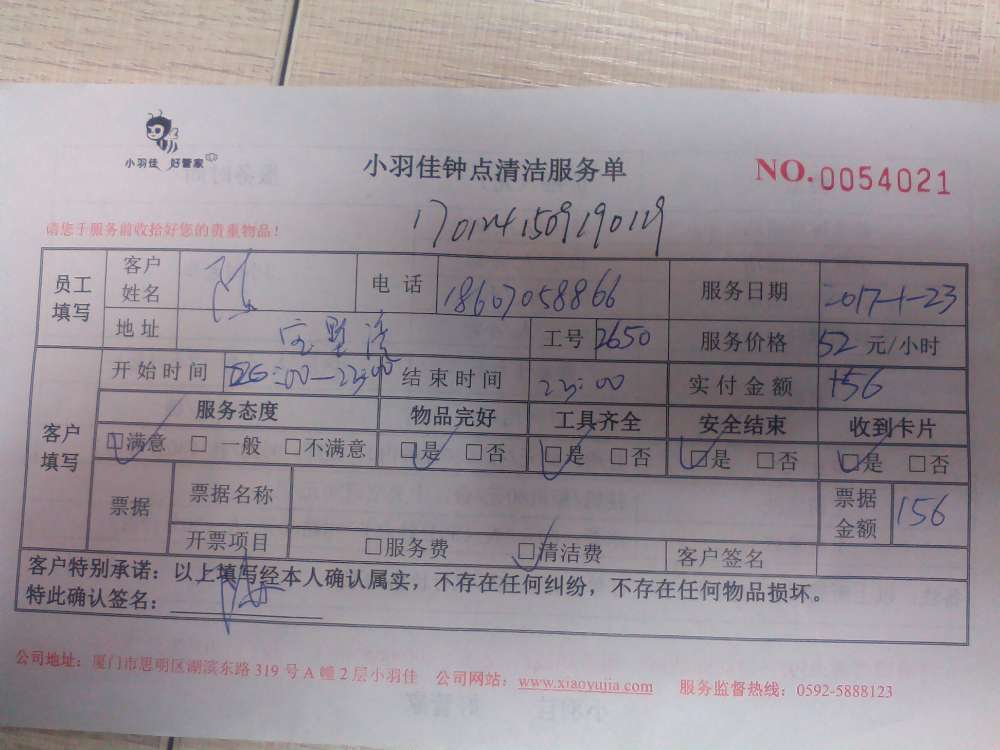 小羽佳 好管家
小羽佳钟点清洁服务单
NO.0054021
请您于服务前收拾好您的贵重物品！
1701241509190119
员工填写 客户姓名 陈 电话 18607058866 服务日期 2017-1-23
地址 工号 2650 服务价格 52 元/小时
客户填写 开始时间 :00—23:00 结束时间 23:00 实付金额 156
服务态度 物品完好 工具齐全 安全结束 收到卡片
□满意 □一般 □不满意 □是 □否 □是 □否 □是 □否 □是 □否
票据 票据名称 票据金额 156
开票项目 □服务费 □清洁费 客户签名
客户特别承诺：以上填写经本人确认属实，不存在任何纠纷，不存在任何物品损坏。
特此确认签名：
公司地址：厦门市思明区湖滨东路 319 号 A 幢 2 层小羽佳 公司网站：www.xiaoyujia.com 服务监督热线：0592-5888123